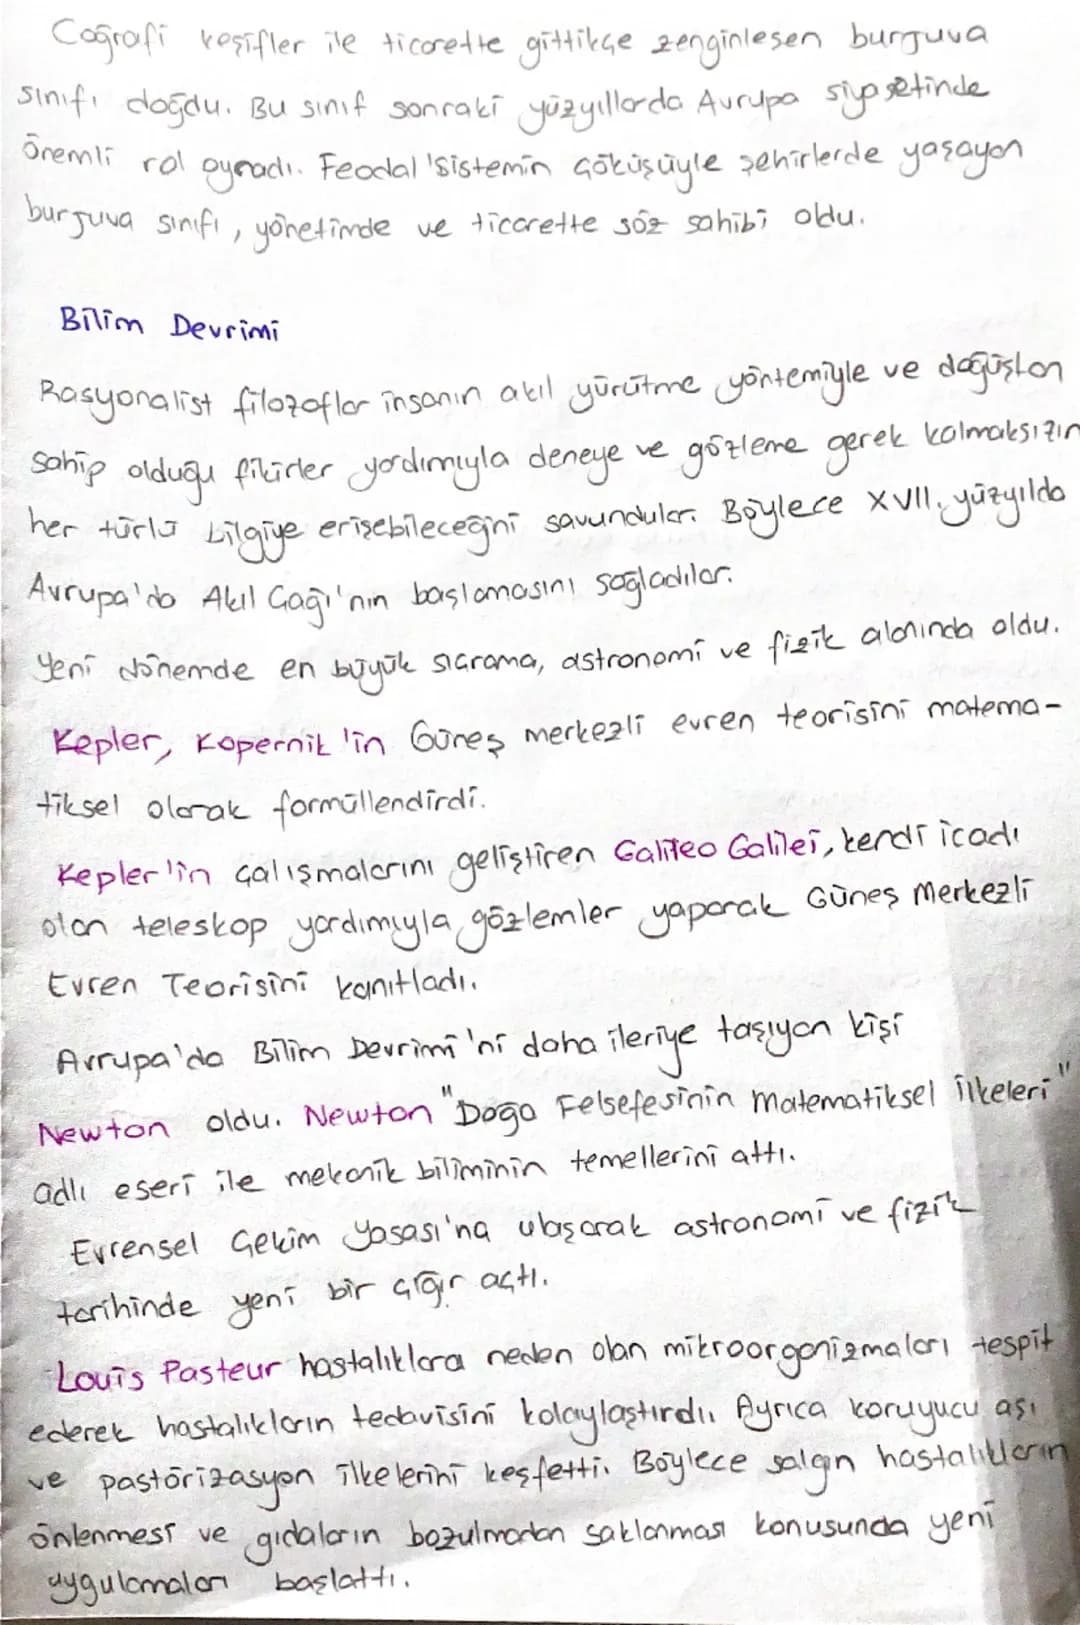 Coğrafi keşifler ile ticarette gittikçe zenginleşen burjuva
sınıfı doğdu. Bu sınıf sonraki yüzyıllarda Avrupa siyasetinde
önemli rol oynadı. Feodal sistemin çöküşüyle şehirlerde yaşayan
burjuva sınıfı, yönetimde ve ticarette söz sahibi oldu.
Bilim Devrimi
Rasyonalist filozoflar insanın akıl yürütme yöntemiyle ve doğuştan
sahip olduğu fikirler yardımıyla deneye ve gözleme gerek kalmaksızın
her türlü bilgiye erişebileceğini savundular. Böylece XVII. yüzyılda
Avrupa'da Akıl Çağı'nın başlamasını sağladılar.
Yeni dönemde en büyük sıçrama, astronomi ve fizik alanında oldu.
Kepler, Kopernik'in Güneş merkezli evren teorisini matema-
tiksel olarak formüllendirdi.
Kepler'in çalışmalarını geliştiren Galileo Galilei, kendi icadı
olan teleskop yardımıyla gözlemler yaparak Güneş Merkezli
Evren Teorisini kanıtladı.
Avrupa'da Bilim Devrimi'ni daha ileriye taşıyan kişi
Newton oldu. Newton "Doğa Felsefesinin Matematiksel İlkeleri"
adlı eseri ile mekanik biliminin temellerini attı.
Evrensel Çekim Yasası'na ulaşarak astronomi ve fizik
tarihinde yeni bir çığır açtı.
Louis Pasteur hastalıklara neden olan mikroorganizmaları tespit
ederek hastalıkların tedavisini kolaylaştırdı. Ayrıca koruyucu aşı
ve pastörizasyon ilkelerini keşfetti. Böylece salgın hastalıkların
önlenmesi ve gıdaların bozulmadan saklanması konusunda yeni
uygulamaları başlattı.